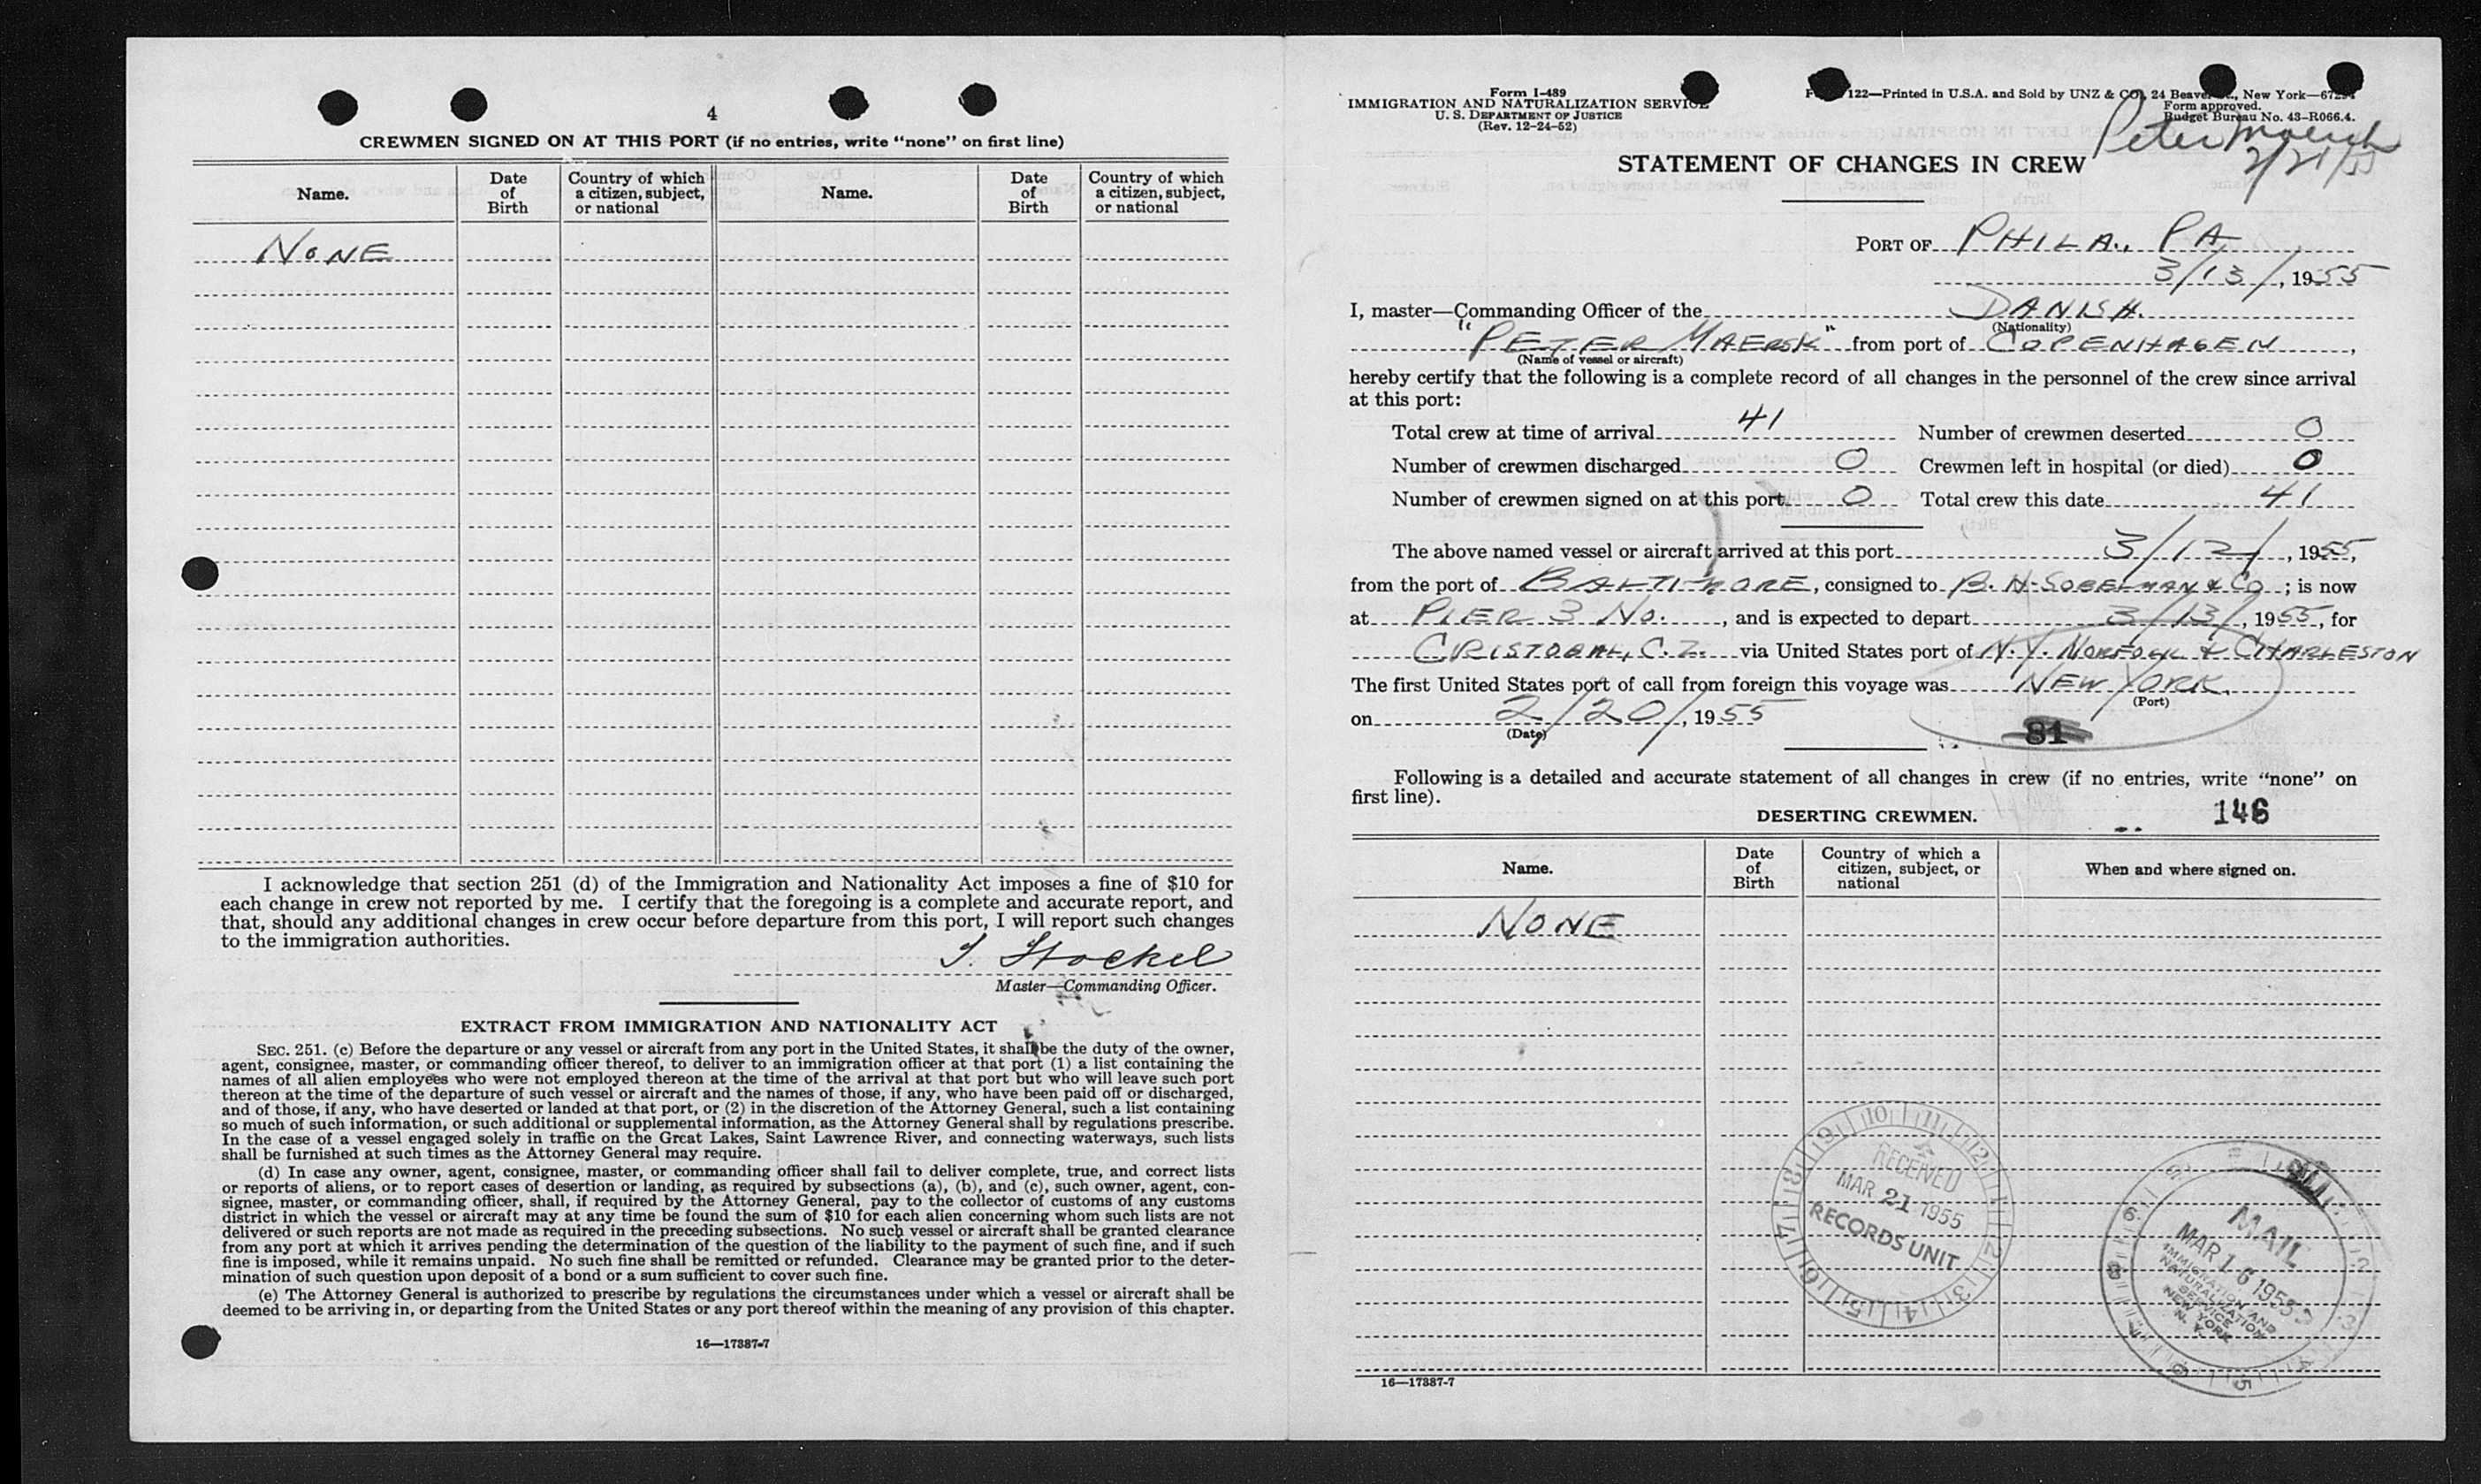 4
CREWMEN SIGNED ON AT THIS PORT (if no entries, write "none" on first line)
Name. Date of Birth Country of which a citizen, subject, or national Name. Date of Birth Country of which a citizen, subject, or national
NONE
I acknowledge that section 251 (d) of the Immigration and Nationality Act imposes a fine of $10 for
each change in crew not reported by me. I certify that the foregoing is a complete and accurate report, and
that, should any additional changes in crew occur before departure from this port, I will report such changes
to the immigration authorities.
Stockel
Master—Commanding Officer.
EXTRACT FROM IMMIGRATION AND NATIONALITY ACT
SEC. 251. (c) Before the departure or any vessel or aircraft from any port in the United States, it shall be the duty of the owner,
agent, consignee, master, or commanding officer thereof, to deliver to an immigration officer at that port (1) a list containing the
names of all alien employees who were not employed thereon at the time of the arrival at that port but who will leave such port
thereon at the time of the departure of such vessel or aircraft and the names of those, if any, who have been paid off or discharged,
and of those, if any, who have deserted or landed at that port, or (2) in the discretion of the Attorney General, such a list containing
so much of such information, or such additional or supplemental information, as the Attorney General shall by regulations prescribe.
In the case of a vessel engaged solely in traffic on the Great Lakes, Saint Lawrence River, and connecting waterways, such lists
shall be furnished at such times as the Attorney General may require.
(d) In case any owner, agent, consignee, master, or commanding officer shall fail to deliver complete, true, and correct lists
or reports of aliens, or to report cases of desertion or landing, as required by subsections (a), (b), and (c), such owner, agent, con-
signee, master, or commanding officer, shall, if required by the Attorney General, pay to the collector of customs of any customs
district in which the vessel or aircraft may at any time be found the sum of $10 for each alien concerning whom such lists are not
delivered or such reports are not made as required in the preceding subsections. No such vessel or aircraft shall be granted clearance
from any port at which it arrives pending the determination of the question of the liability to the payment of such fine, and if such
fine is imposed, while it remains unpaid. No such fine shall be remitted or refunded. Clearance may be granted prior to the deter-
mination of such question upon deposit of a bond or a sum sufficient to cover such fine.
(e) The Attorney General is authorized to prescribe by regulations the circumstances under which a vessel or aircraft shall be
deemed to be arriving in, or departing from the United States or any port thereof within the meaning of any provision of this chapter.
16—17387-7
Form I-489
IMMIGRATION AND NATURALIZATION SERVICE
U. S. DEPARTMENT OF JUSTICE
(Rev. 12-24-52)
122—Printed in U.S.A. and Sold by UNZ & CO., 24 Beaver St., New York
Form approved.
Budget Bureau No. 43-R066.4.
Peter Maersk
STATEMENT OF CHANGES IN CREW
PORT OF PHILA., PA
3/13/, 1955
I, master—Commanding Officer of the DANISH.
(Nationality)
"PETER MAERSK" from port of COPENHAGEN,
(Name of vessel or aircraft)
hereby certify that the following is a complete record of all changes in the personnel of the crew since arrival
at this port:
Total crew at time of arrival 41 Number of crewmen deserted 0
Number of crewmen discharged 0 Crewmen left in hospital (or died) 0
Number of crewmen signed on at this port 0 Total crew this date 41
The above named vessel or aircraft arrived at this port 3/12/, 1955,
from the port of BALTIMORE, consigned to B. H. SOBELMAN & CO; is now
at PIER 3 NO., and is expected to depart 3/13/, 1955, for
CRISTOBAL, C.Z. via United States port of N.Y. NORFOLK & CHARLESTON
The first United States port of call from foreign this voyage was NEW YORK.
(Port)
on 2/20/, 1955
(Date)
81
Following is a detailed and accurate statement of all changes in crew (if no entries, write "none" on
first line).
DESERTING CREWMEN.
146
Name. Date of Birth Country of which a citizen, subject, or national When and where signed on.
NONE
RECEIVED
MAR 21 1955
RECORDS UNIT
MAIL
MAR 16 1955
IMMIGRATION AND
NATURALIZATION
SERVICE
NEW YORK
N. Y.
16—17387-7